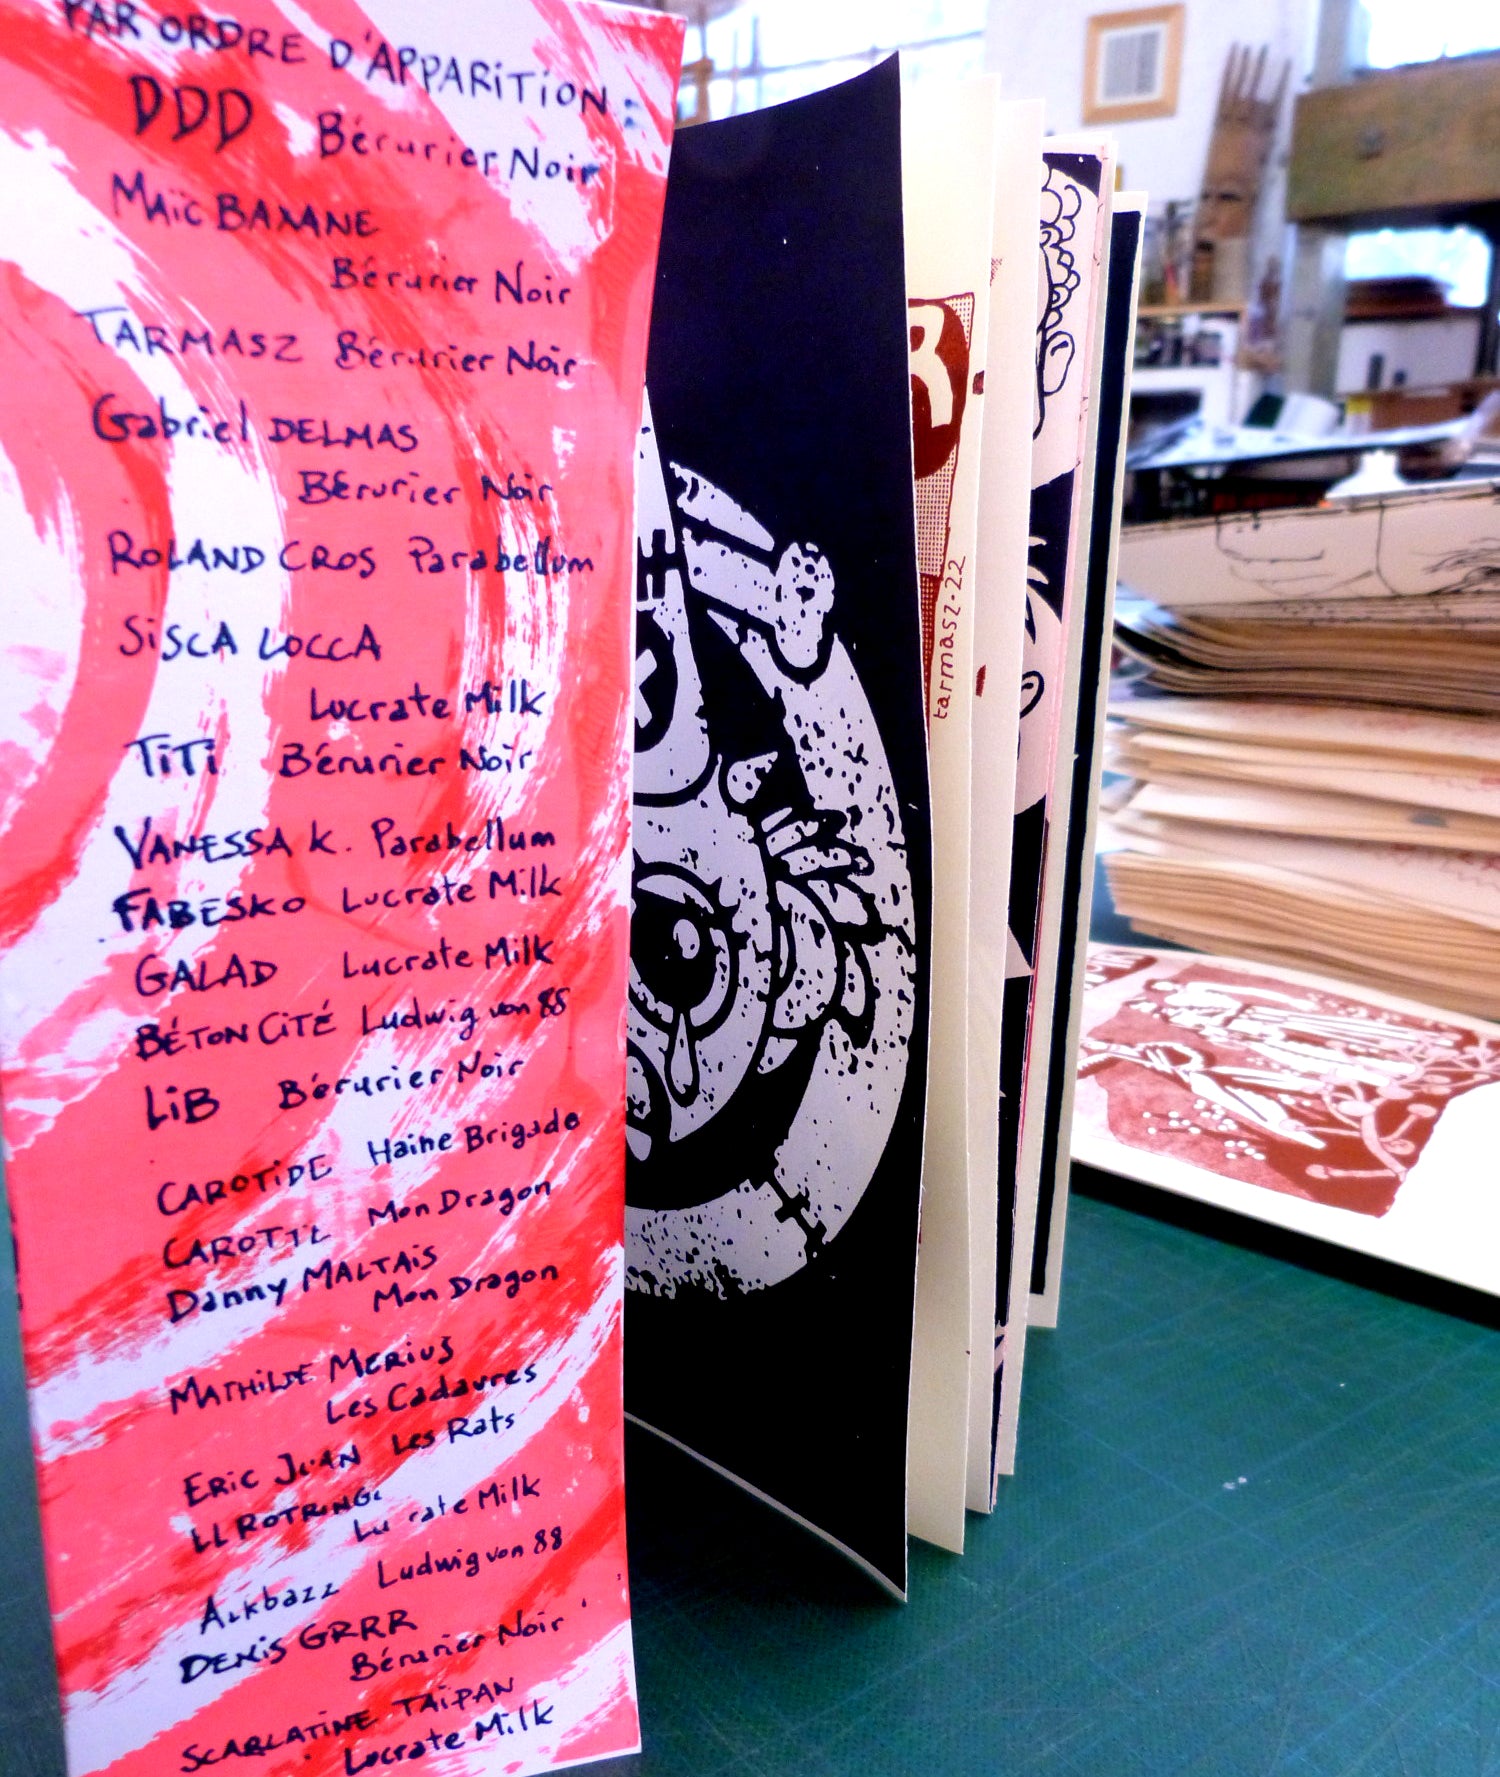 PAR ORDRE D'APPARITION:
DDD Bérurier Noir
MAÏC BATANE
Bérurier Noir
TARMASZ Bérurier Noir
Gabriel DELMAS
Bérurier Noir
ROLAND CROS Parabellum
SISCA LOCCA
Lucrate Milk
TiTi Bérurier Noir
VANESSA K. Parabellum
FABESKO Lucrate Milk
GALAD Lucrate Milk
BÉTON CITÉ Ludwig von 88
LiB Bérurier Noir
CAROTIDE Haine Brigade
CAROTTE Mon Dragon
Danny MALTAiS
Mon Dragon
MATHILDE MERIUS
Les Cadavres
ERIC JUAN Les Rats
LL ROTRING
Lu rate Milk
Alkbazz Ludwig von 88
DENIS GRRR
Bérurier Noir
SCARLATINE TAIPAN
Lucrate Milk
R
tarmasz.22